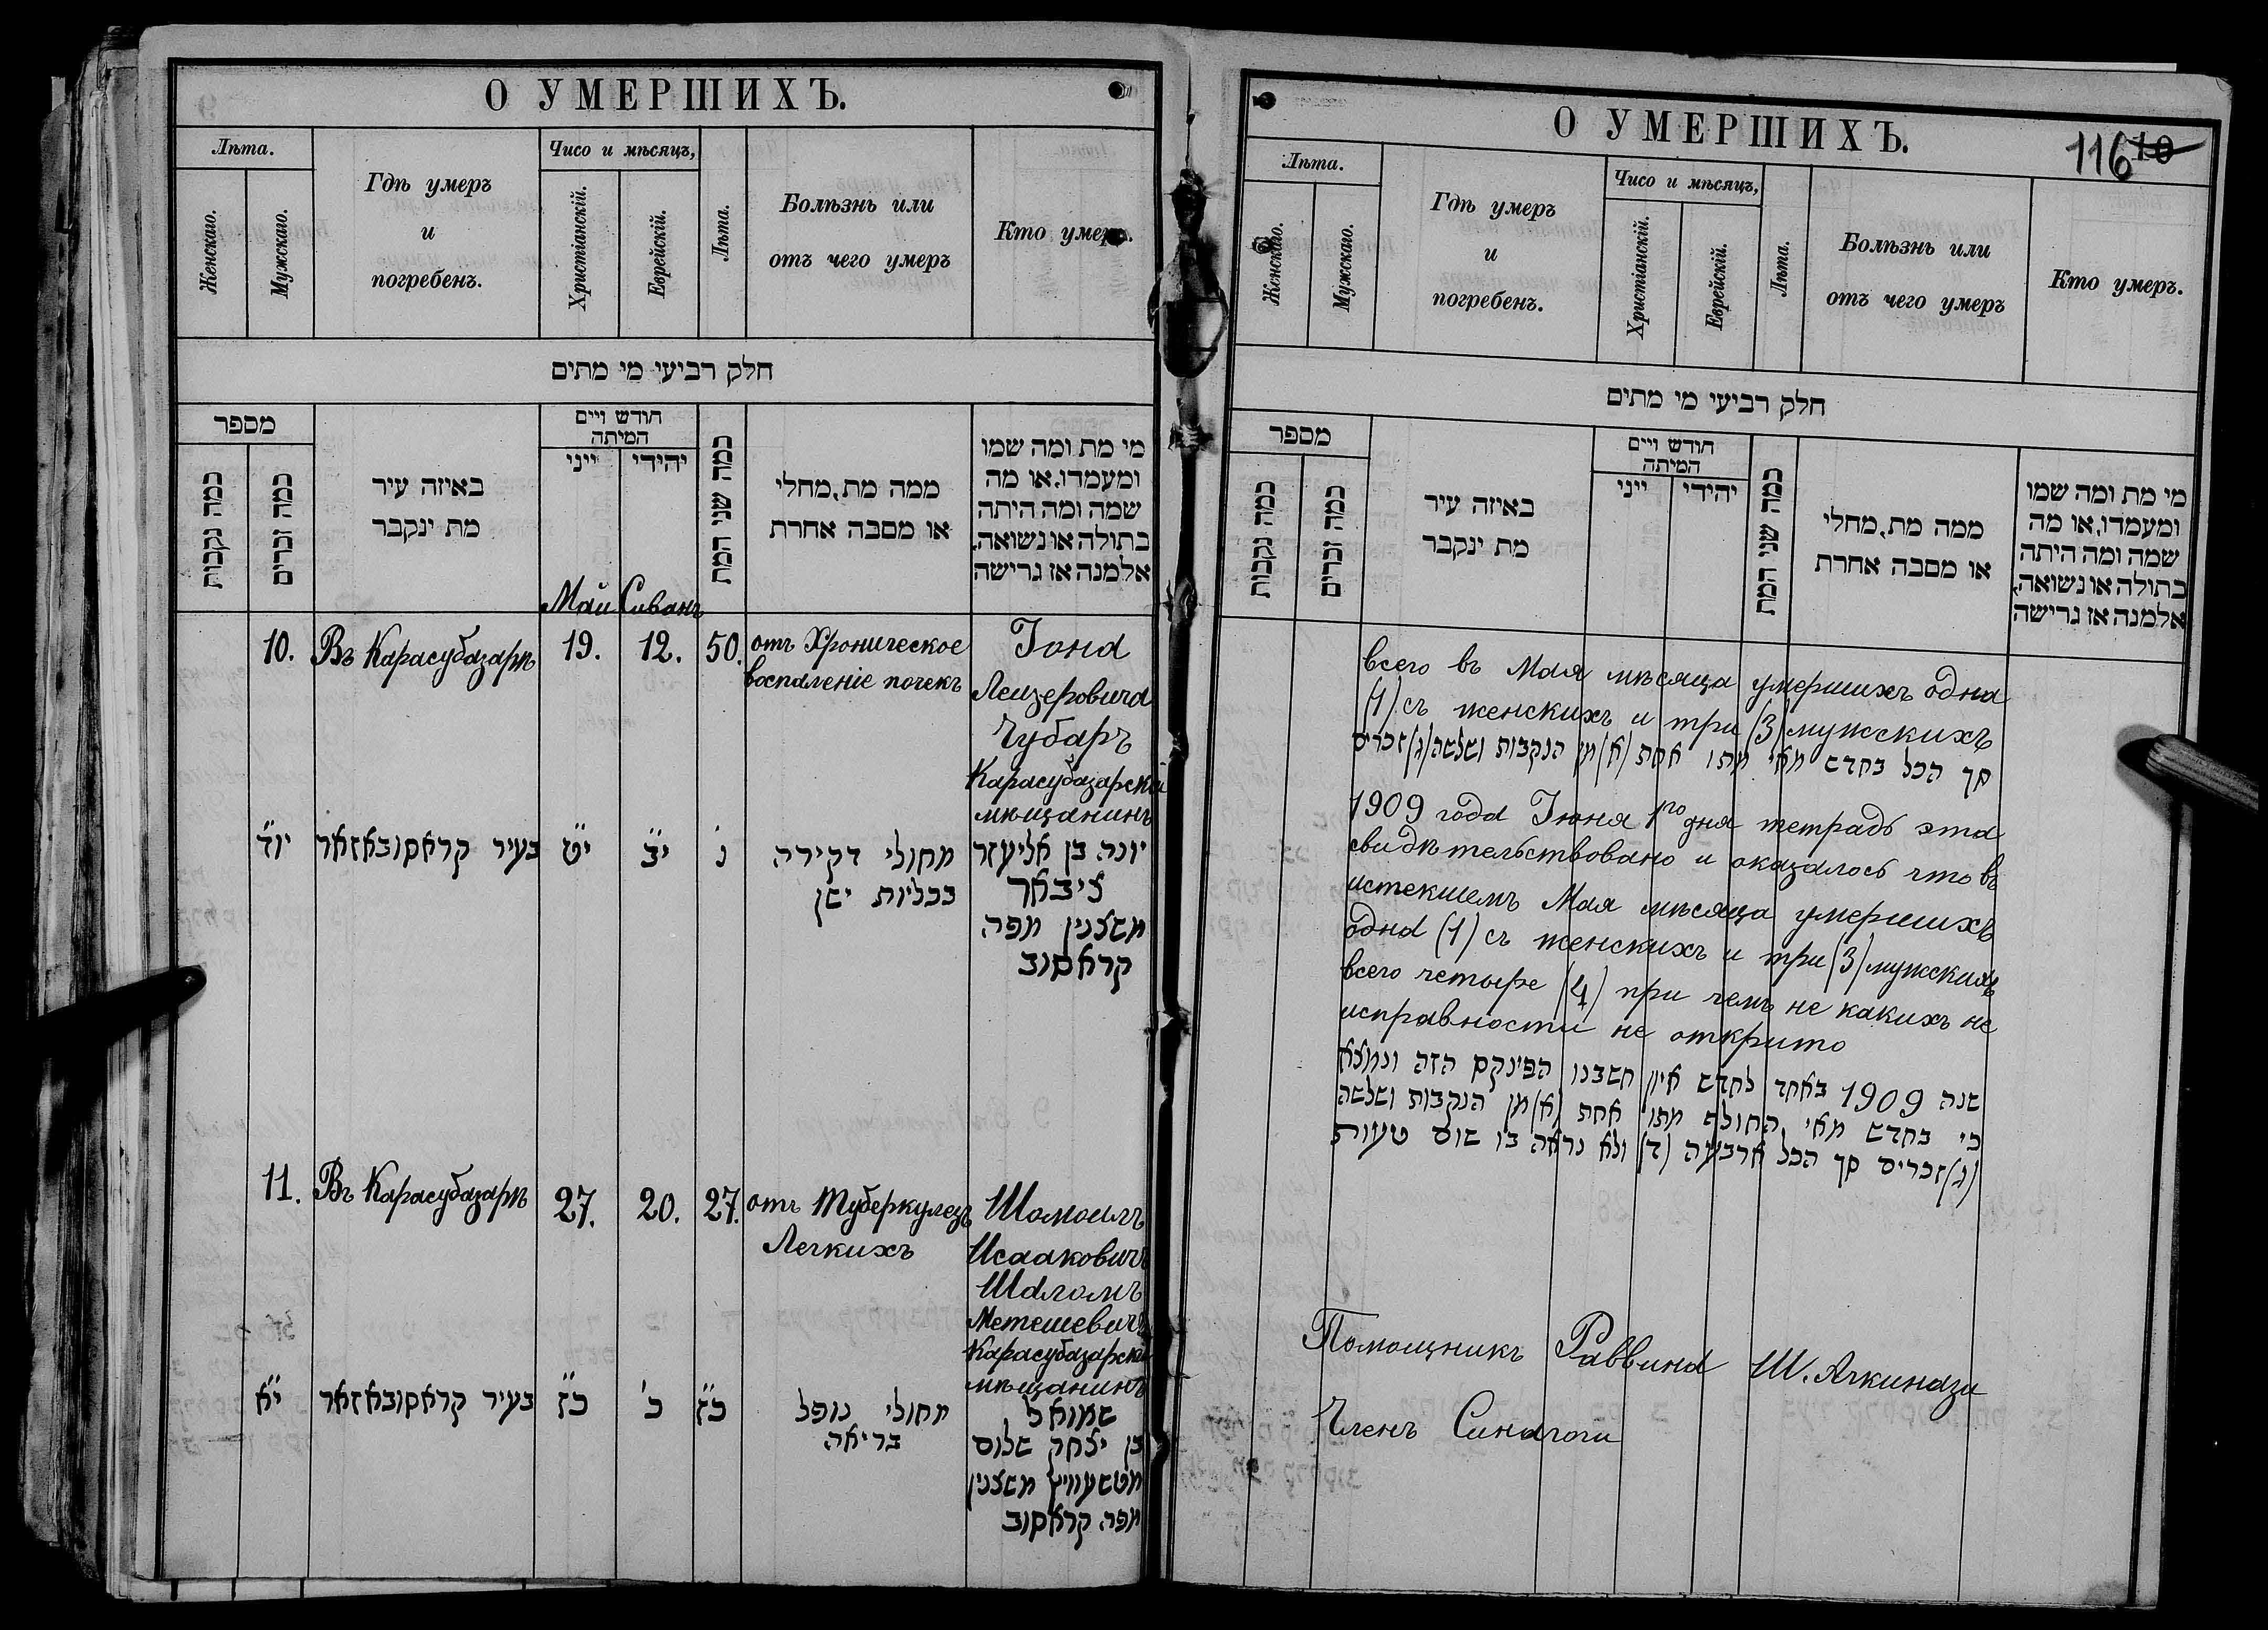 О УМЕРШИХЪ.
Лѣта.
Женскаго.
Мужскаго.
Гдѣ умеръ
и
погребенъ.
Чисо и мѣсяцъ,
Христіанскій.
Еврейскій.
Лѣта.
Болѣзнь или
отъ чего умеръ
Кто умеръ.
חלק רביעי מי מתים
מספר
כמה נקבות
כמה זכרים
באיזה עיר
מת ינקבר
חודש ויים
המיתה
ייני
יהידי
כמה שני המת
ממה מת, מחלי
או מסבה אחרת
מי מת ומה שמו
ומעמדו, או מה
שמה ומה היתה
בתולה או נשואה,
אלמנה אז גרישה
Май Сиванъ
10. Въ Карасубазарѣ 19. 12. 50. отъ Хроническое
воспаленіе почекъ
Іона
Леизеровича
Чубаръ
Карасубазарскій
мѣщанинъ
יו"ד בעיר קראסובאזאר י"ט י"ב נ' מחולי דקירה
בכליות ישן
יונה בן אליעזר
ציבאר
משצנין מפה
קראסוב
11. Въ Карасубазарѣ 27. 20. 27. отъ Туберкулезъ
Легкихъ
Шомоилъ
Исааковичъ
Шаломъ
Метешевичъ
Карасубазарскій
мѣщанинъ
י"א בעיר קראסובאזאר כ"ז כ' כ"ז מחולי נופל
בריאה
שמואל
בן יצחק שלום
מטשעוויץ משצנין
מפה קראסוב
О УМЕРШИХЪ.
116 10
Лѣта.
Женскаго.
Мужскаго.
Гдѣ умеръ
и
погребенъ.
Чисо и мѣсяцъ,
Христіанскій.
Еврейскій.
Лѣта.
Болѣзнь или
отъ чего умеръ
Кто умеръ.
חלק רביעי מי מתים
מספר
כמה נקבות
כמה זכרים
באיזה עיר
מת ינקבר
חודש ויים
המיתה
ייני
יהידי
כמה שני המת
ממה מת, מחלי
או מסבה אחרת
מי מת ומה שמו
ומעמדו, או מה
שמה ומה היתה
בתולה או נשואה,
אלמנה אז גרישה
всего въ Мая мѣсяца умершихъ одна
(1) съ женскихъ и три (3) мужскихъ
סך הכל בחדש מאי מתו אחת (א) מן הנקבות ושלשה (ג) זכרים
1909 года Іюня 1го дня тетрадь эта
свидѣтельствовано и оказалось что въ
истекшемъ Мая мѣсяца умершихъ
одна (1) съ женскихъ и три (3) мужскихъ
всего четыре (4) при чемъ не какихъ не
исправности не открито
שנה 1909 באחד לחדש איון חשבנו הפינקס הזה ונמצא
כי בחדש מאי החולף מתו אחת (א) מן הנקבות ושלשה
(ג) זכרים סך הכל ארבעה (ד) ולא נראה בו שום טעות
Помощникъ Раввина Ш. Ачкинази
Членъ Синагоги